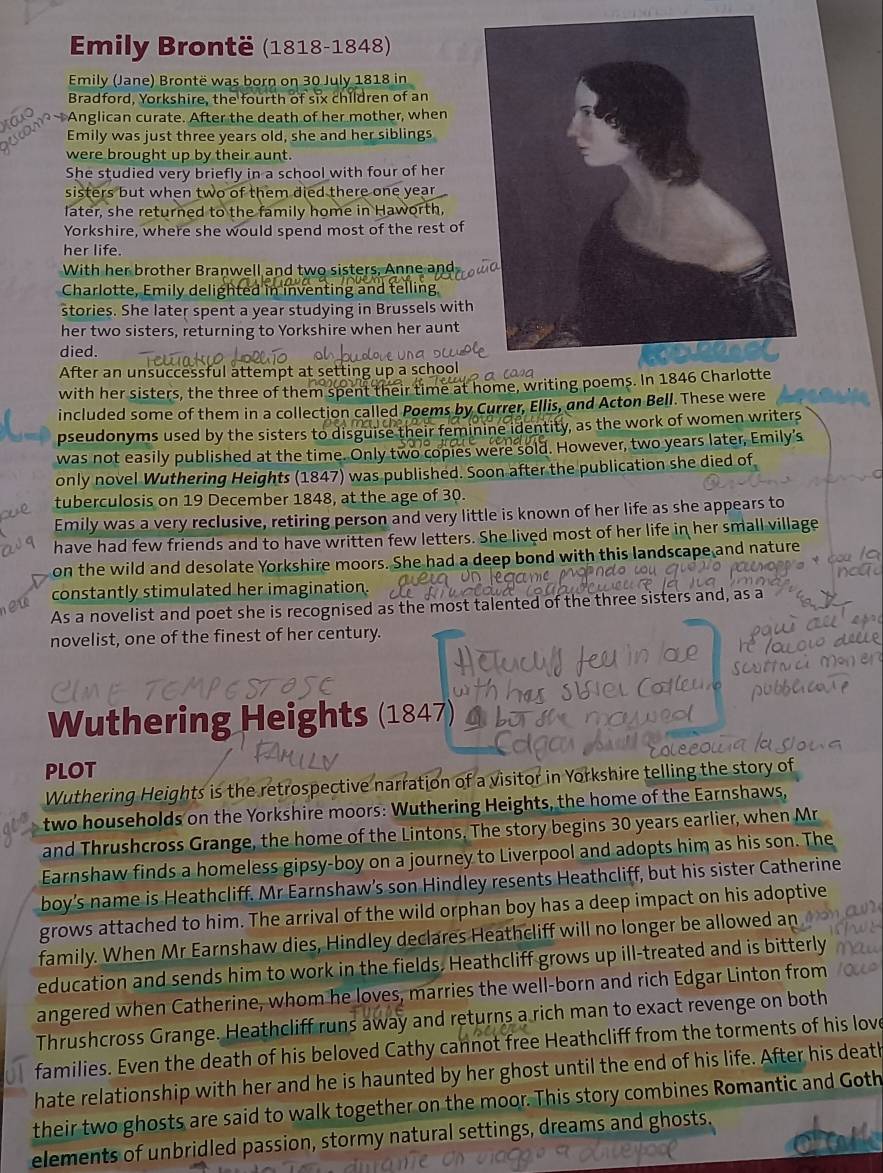 Emily Brontë (1818-1848)
Emily (Jane) Brontë was born on 30 July 1818 in
Bradford, Yorkshire, the fourth of six children of an
Anglican curate. After the death of her mother, when
Emily was just three years old, she and her siblings
were brought up by their aunt.
She studied very briefly in a school with four of her
sisters but when two of them died there one year
later, she returned to the family home in Haworth,
Yorkshire, where she would spend most of the rest of
her life.
With her brother Branwell and two sisters, Anne and
Charlotte, Emily delighted in inventing and telling
stories. She later spent a year studying in Brussels with
her two sisters, returning to Yorkshire when her aunt
died.
una scuola
After an unsuccessful attempt at setting up a school
a casa
with her sisters, the three of them spent their time at home, writing poems. In 1846 Charlotte
included some of them in a collection called Poems by Currer, Ellis, and Acton Bell. These were
pseudonyms used by the sisters to disguise their feminine identity, as the work of women writers
was not easily published at the time. Only two copies were sold. However, two years later, Emily's
only novel Wuthering Heights (1847) was published. Soon after the publication she died of
tuberculosis on 19 December 1848, at the age of 30.
Emily was a very reclusive, retiring person and very little is known of her life as she appears to
have had few friends and to have written few letters. She lived most of her life in her small village
on the wild and desolate Yorkshire moors. She had a deep bond with this landscape and nature
aveva un legame profondo con questo
constantly stimulated her imagination.
As a novelist and poet she is recognised as the most talented of the three sisters and, as a
novelist, one of the finest of her century.
fell in
with his sister
CIME TEMPESTOSE
pubblicate
Wuthering Heights (1847)
but she married
FAMILY
la storia
PLOT
Wuthering Heights is the retrospective narration of a visitor in Yorkshire telling the story of
two households on the Yorkshire moors: Wuthering Heights, the home of the Earnshaws,
and Thrushcross Grange, the home of the Lintons. The story begins 30 years earlier, when Mr
Earnshaw finds a homeless gipsy-boy on a journey to Liverpool and adopts him as his son. The
boy's name is Heathcliff. Mr Earnshaw's son Hindley resents Heathcliff, but his sister Catherine
grows attached to him. The arrival of the wild orphan boy has a deep impact on his adoptive
family. When Mr Earnshaw dies, Hindley declares Heathcliff will no longer be allowed an
education and sends him to work in the fields. Heathcliff grows up ill-treated and is bitterly
angered when Catherine, whom he loves, marries the well-born and rich Edgar Linton from
Thrushcross Grange. Heathcliff runs away and returns a rich man to exact revenge on both
families. Even the death of his beloved Cathy cannot free Heathcliff from the torments of his love
hate relationship with her and he is haunted by her ghost until the end of his life. After his death
their two ghosts are said to walk together on the moor. This story combines Romantic and Goth
elements of unbridled passion, stormy natural settings, dreams and ghosts.
un viaggio a